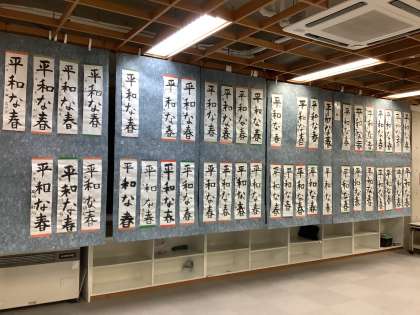 平和な春
平和な春
平和な春
平和な春
平和な春
平和な春
平和な春
平和な春
平和な春
平和な春
平和な春
平和な春
平和な春
平和な春
平和な春
平和な春
平和な春
平和な春
平和な春
平和な春
平和な春
平和な春
平和な春
平和な春
平和な春
平和な春
平和な春
平和な春
平和な春
平和な春
平和な春
平和な春
平和な春
平和な春
平和な春
平和な春
平和な春
平和な春
平和な春
平和な春
平和な春
平和な春
平和な春
平和な春
平和な春